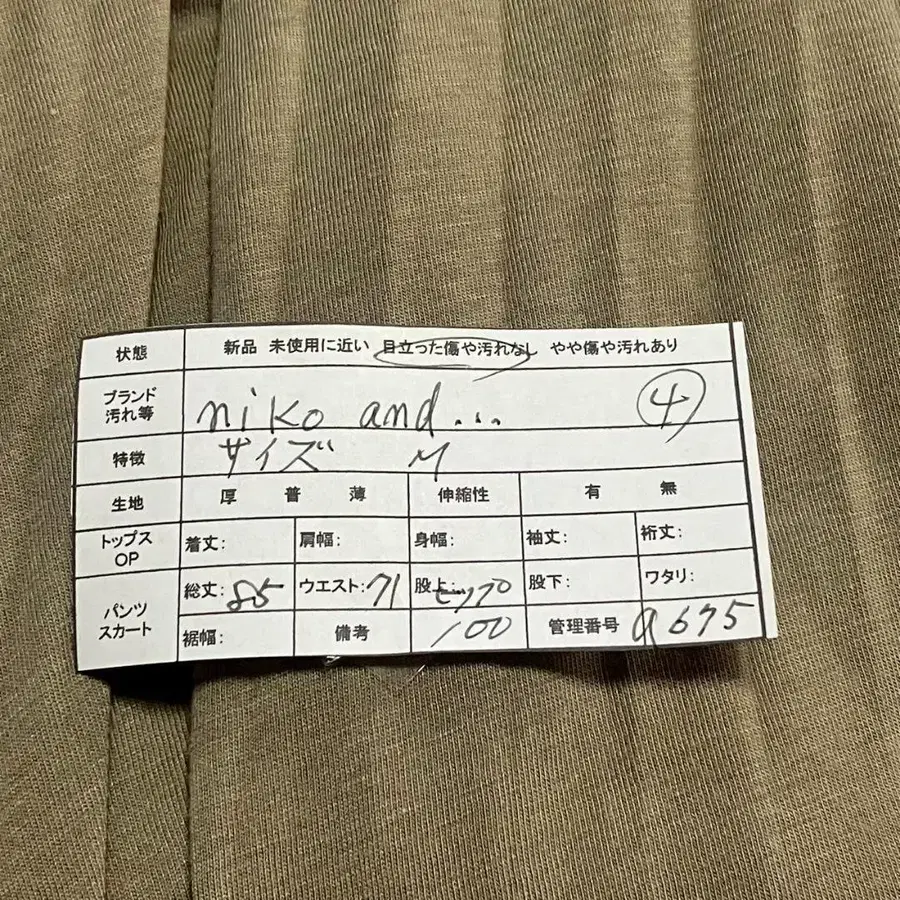 状態 新品 未使用に近い 目立った傷や汚れなし やや傷や汚れあり
ブランド 汚れ等 niko and... ④
特徴 サイズ M
生地 厚 普 薄 伸縮性 有 無
トップス OP 着丈: 肩幅: 身幅: 袖丈: 裄丈:
パンツ スカート 総丈: 85 ウエスト: 71 股上: ヒップ 股下: ワタリ:
裾幅: 備考 100 管理番号 a675